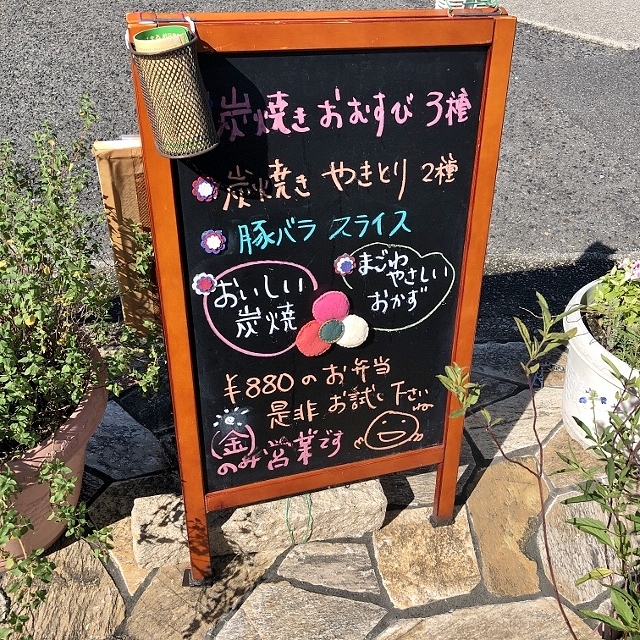 炭焼きおむすび 3種
炭焼き やきとり 2種
豚バラ スライス
おいしい
炭焼
まごわ
やさしい
おかず
¥880のお弁当
是非 お試し下さいね
(金)
のみ営業です